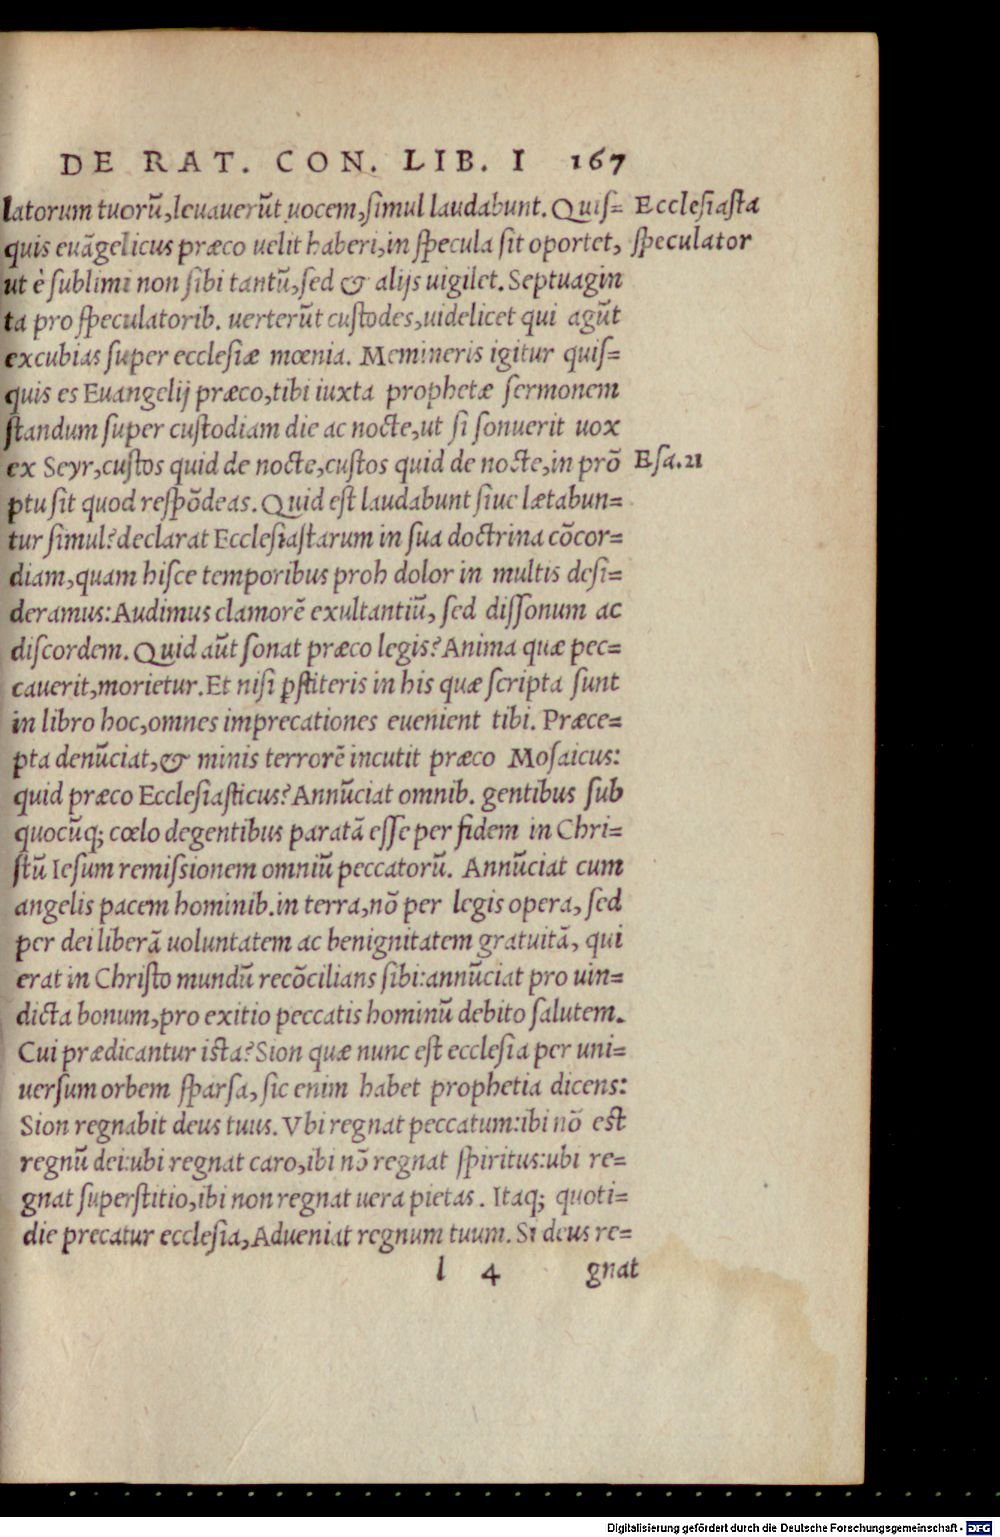 DE RAT. CON. LIB. I 167
latorum tuorũ, leuauerũt uocem, simul laudabunt. Quis= Ecclesiasta
quis euãgelicus præco uelit haberi, in specula sit oportet, speculator
ut è sublimi non sibi tantũ, sed & alijs uigilet. Septuagin
ta pro speculatorib. uerterũt custodes, uidelicet qui agũt
excubias super ecclesiæ mœnia. Memineris igitur quis=
quis es Euangelij præco, tibi iuxta prophetæ sermonem
standum super custodiam die ac nocte, ut si sonuerit uox
ex Seyr, custos quid de nocte, custos quid de nocte, in prõ Esa. 21
ptu sit quod respõdeas. Quid est laudabunt siue lætabun=
tur simul? declarat Ecclesiastarum in sua doctrina cõcor=
diam, quam hisce temporibus proh dolor in multis desi=
deramus: Audimus clamorẽ exultantiũ, sed dissonum ac
discordem. Quid aũt sonat præco legis? Anima quæ pec=
cauerit, morietur. Et nisi ꝑstiteris in his quæ scripta sunt
in libro hoc, omnes imprecationes euenient tibi. Præce=
pta denũciat, & minis terrorẽ incutit præco Mosaicus:
quid præco Ecclesiasticus? Annũciat omnib. gentibus sub
quocũq; cœlo degentibus paratã esse per fidem in Chri=
stũ Iesum remissionem omniũ peccatorũ. Annũciat cum
angelis pacem hominib. in terra, nõ per legis opera, sed
per dei liberã uoluntatem ac benignitatem gratuitã, qui
erat in Christo mundũ recõcilians sibi: annũciat pro uin=
dicta bonum, pro exitio peccatis hominũ debito salutem.
Cui prædicantur ista? Sion quæ nunc est ecclesia per uni=
uersum orbem sparsa, sic enim habet prophetia dicens:
Sion regnabit deus tuus. Vbi regnat peccatum: ibi nõ est
regnũ dei: ubi regnat caro, ibi nõ regnat spiritus: ubi re=
gnat superstitio, ibi non regnat uera pietas. Itaq; quoti=
die precatur ecclesia, Adueniat regnum tuum. Si deus re=
l 4 gnat
Digitalisierung gefördert durch die Deutsche Forschungsgemeinschaft - DFG